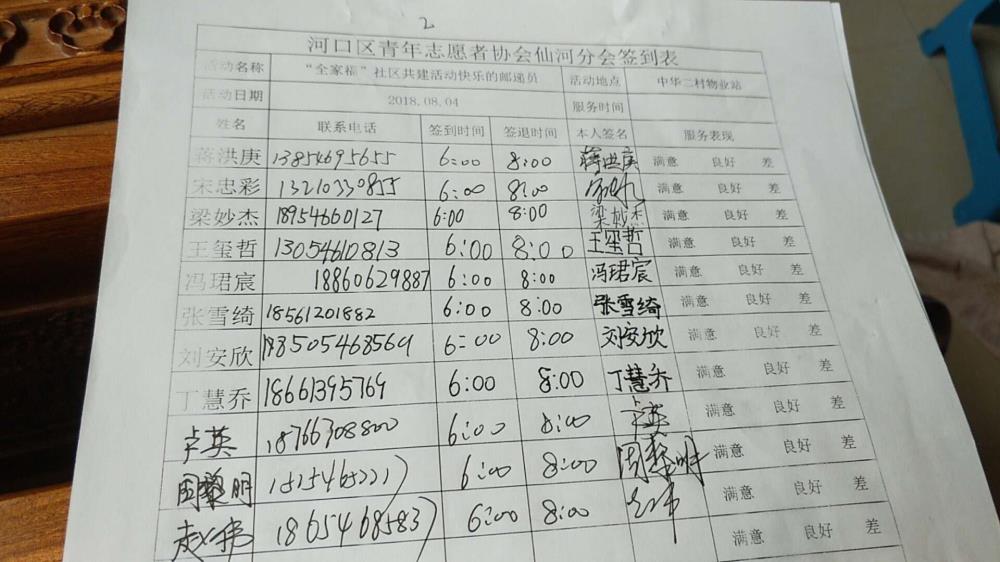 2
河口区青年志愿者协会仙河分会签到表
活动名称 “全家福”社区共建活动快乐的邮递员 活动地点 中华二村物业站
活动日期 2018.08.04 服务时间
姓名 联系电话 签到时间 签退时间 本人签名 服务表现
蒋洪庚 13854695655 6:00 8:00 蒋洪庚 满意 良好 差
宋忠彩 13210330855 6:00 8:00 满意 良好 差
梁妙杰 18954660127 6:00 8:00 梁妙杰 满意 良好 差
王玺哲 13054610813 6:00 8:00 王玺哲 满意 良好 差
冯珺宸 18860629887 6:00 8:00 冯珺宸 满意 良好 差
张雪绮 18561201882 6:00 8:00 张雪绮 满意 良好 差
刘安欣 6:00 8:00 刘安欣 满意 良好 差
丁慧乔 18661395769 6:00 8:00 丁慧乔 满意 良好 差
卢英 18766308800 6:00 8:00 卢英 满意 良好 差
周黎明 6:00 8:00 周黎明 满意 良好 差
赵伟 18654685837 6:00 8:00 满意 良好 差
满意 良好 差